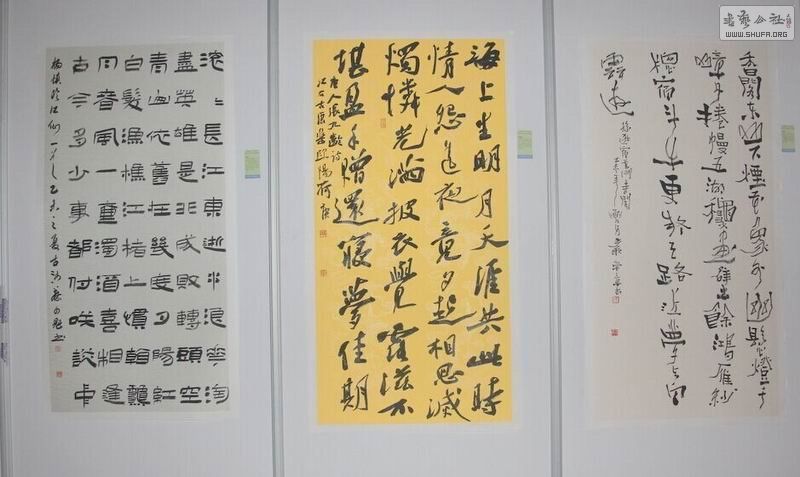 書藝公社
WWW.SHUFA.ORG
滾〻長江東逝水浪花淘
盡英雄是非成敗轉頭空
青山依舊在幾度夕陽紅
白髮漁樵江渚上慣看龝
月春風一壺濁酒喜相逢
古今多少事都付笑談中
楊慎臨江仙一首乙未之夏
海上生明月天涯共此時
情人怨遙夜竟夕起相思滅
燭憐光滿披衣覺露滋不
堪盈手贈還寢夢佳期
唐人張九齡詩
香閣東山下煙花象外幽懸燈千
嶂夕捲幔五湖穐畫壁餘鴻雁紗
窗宿斗牛更疑天路近夢與白
雲遊